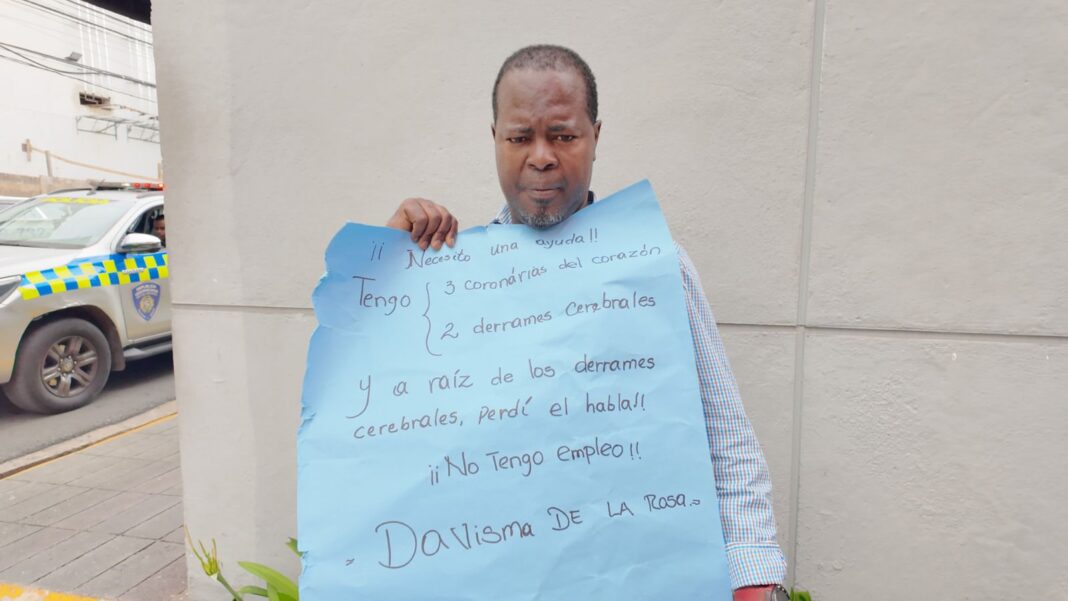 ¡¡ Necesito una ayuda!!
Tengo { 3 coronárias del corazón
2 derrames cerebrales
y a raíz de los derrames
cerebrales, perdí el habla!!
¡¡No Tengo empleo!!
Davisma DE LA ROSA